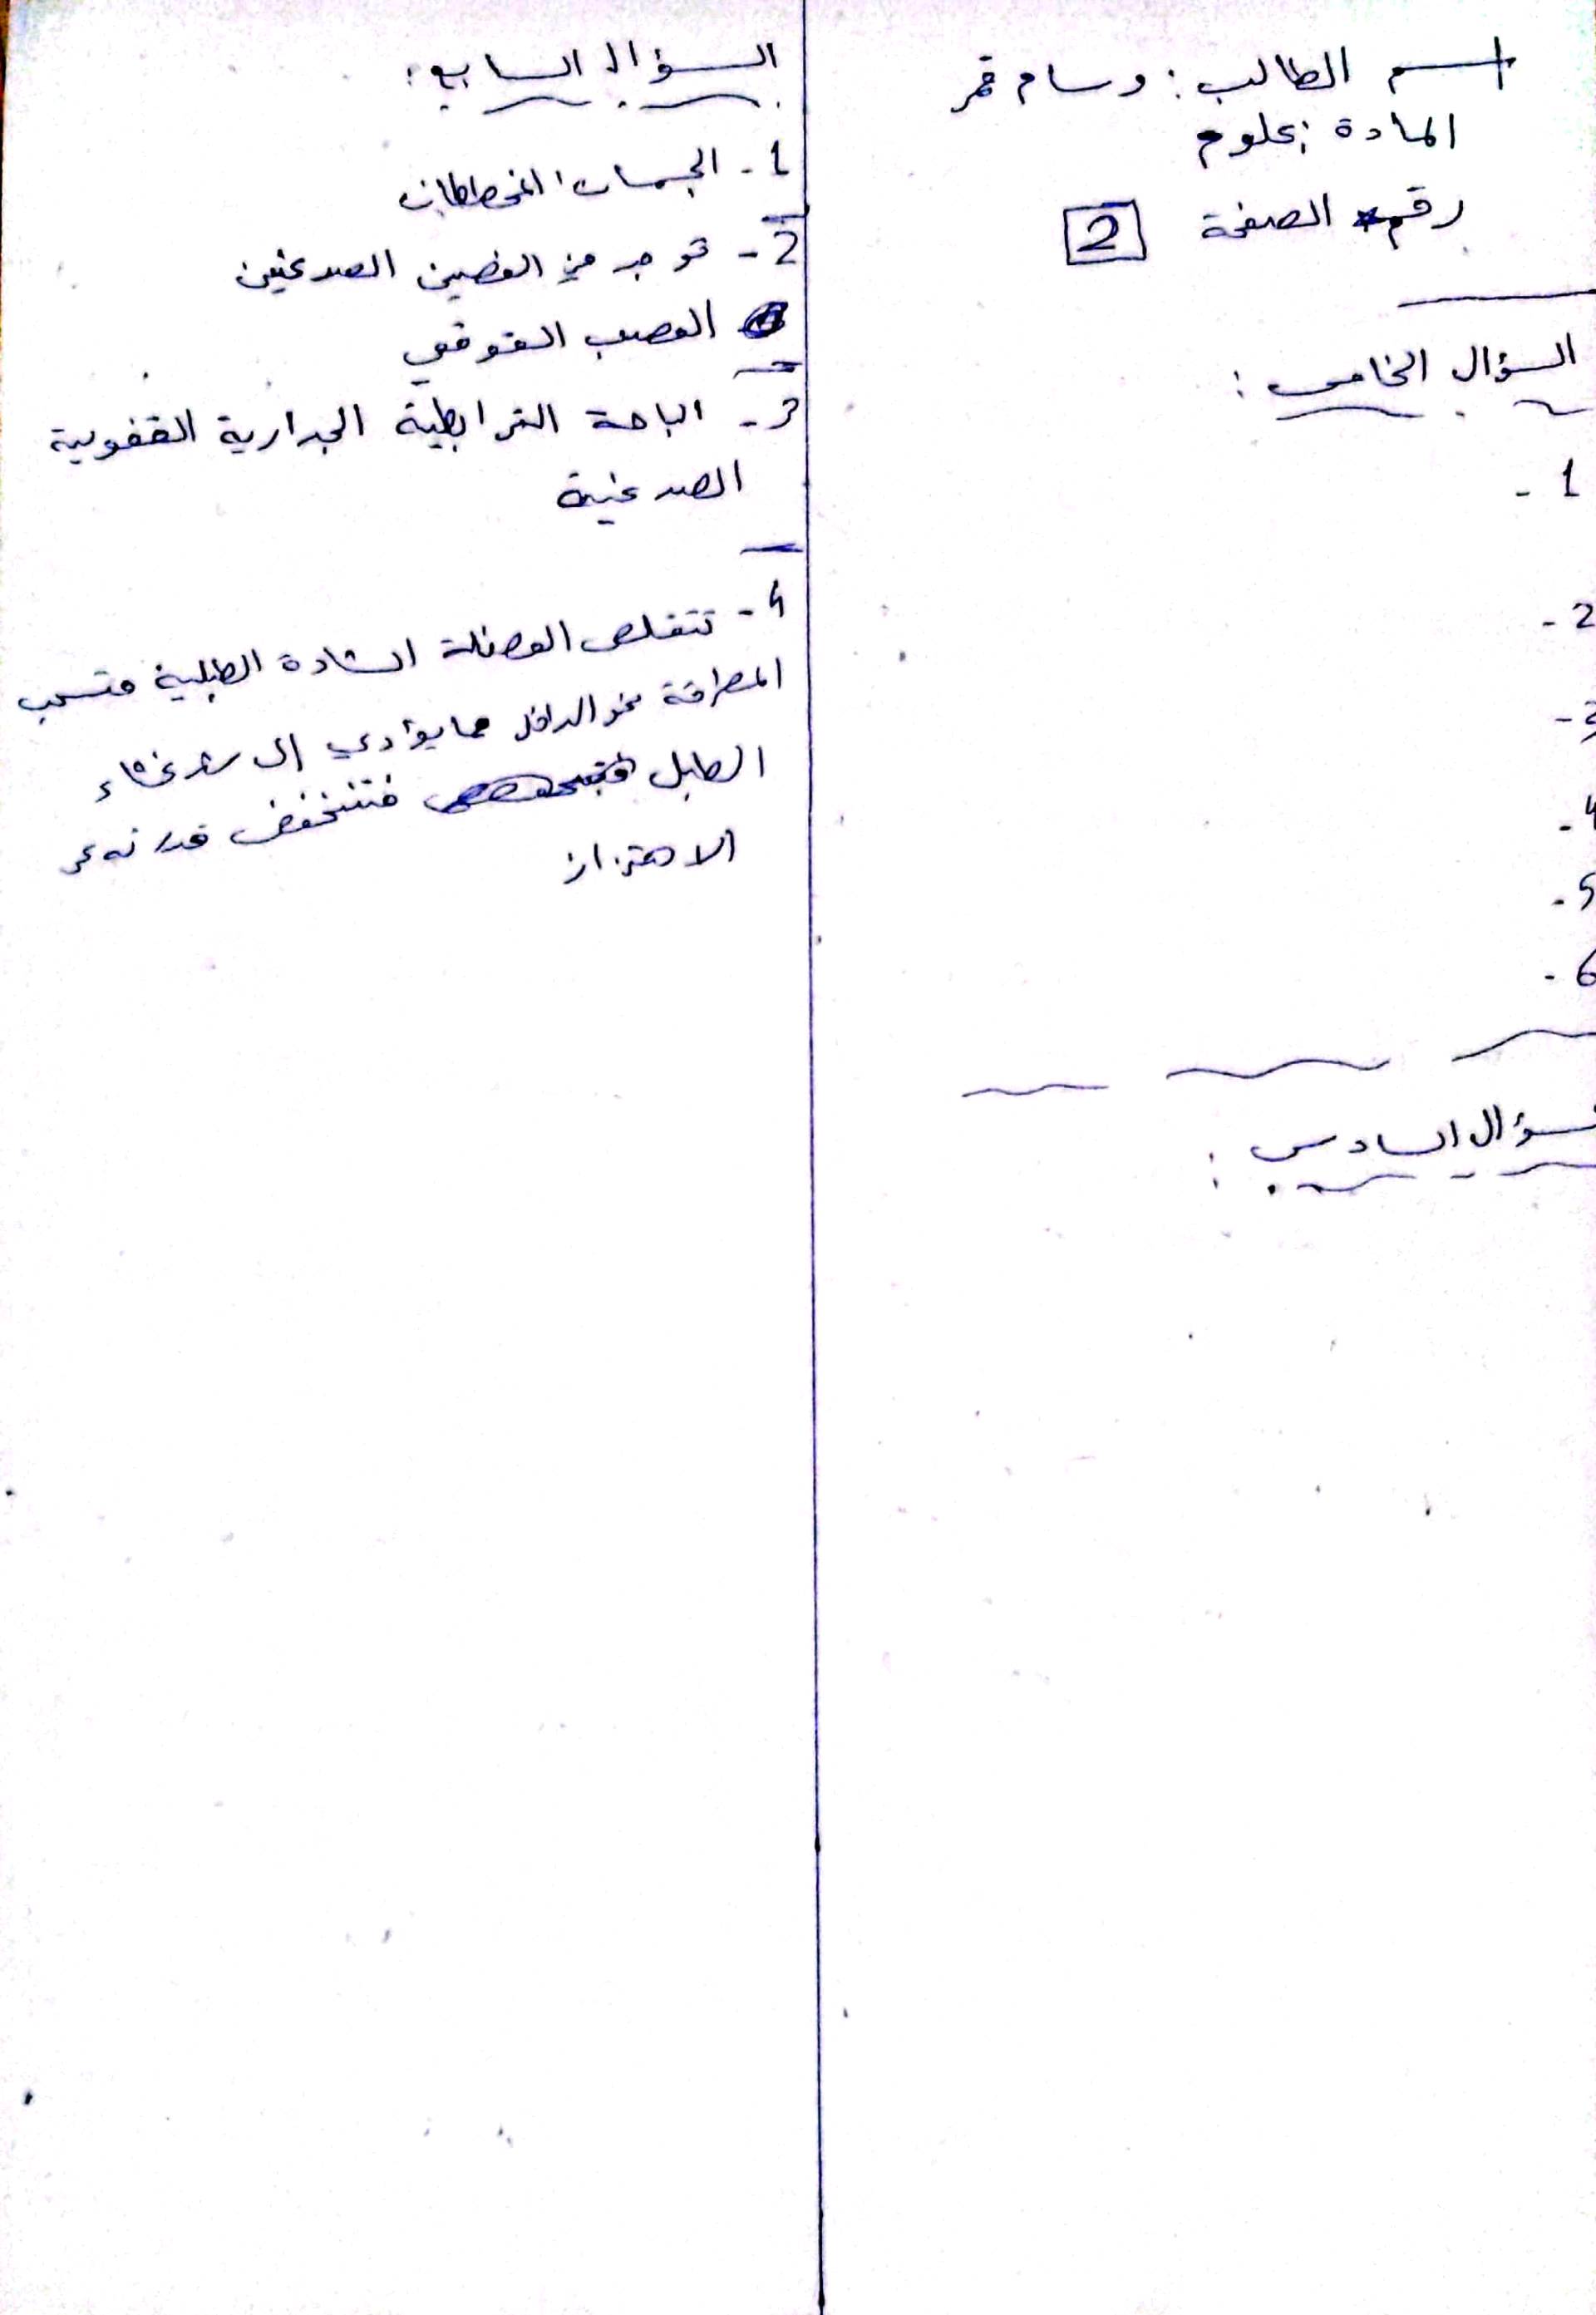 اسم الطالب : وسام قمر
المادة : علوم
رقم الصفحة 2
السؤال الخامس :
1 -
2 -
3 -
4 -
5 -
6 -
السؤال السادس :
السؤال السابع :
1 - الجسمان المخططان
2 - توجد في الفصين الصدغيين
العصب القوقعي
3 - الباحة الترابطية الجدارية القفوية
الصدغية
4 - تتقلص العضلة الشادة الطبلية فتسحب
المطرقة نحو الداخل مما يؤدي إلى شد غشاء
الطبل فتنخفض قدرته على
الاهتزاز